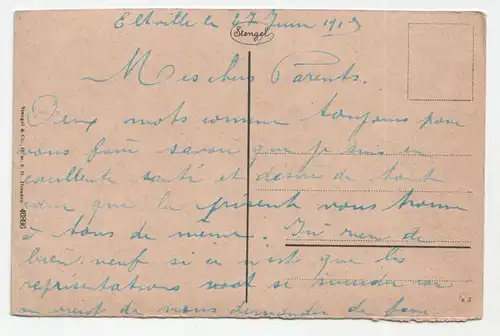 Eltville le 27 Juin 1919
Stengel
Mes chers Parents.
Deux mots comme toujours pour
vous faire savoir que je suis en
excellente santé et désire de toute
cœur que la présente vous trouve
à tous de même. Ici rien de
bien neuf si ce n'est que les
représentations vont
on vient de nous demander de faire
Stengel & Co., G. m. b. H., Dresden 49886